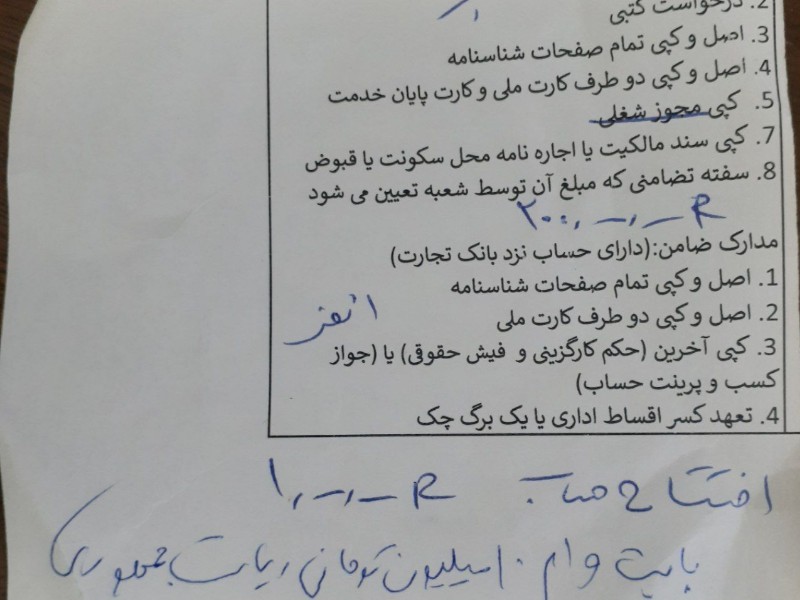 2. درخواست کتبی
3. اصل و کپی تمام صفحات شناسنامه
4. اصل و کپی دو طرف کارت ملی و کارت پایان خدمت
5. کپی مجوز شغلی
7. کپی سند مالکیت یا اجاره نامه محل سکونت یا قبوض
8. سفته تضامنی که مبلغ آن توسط شعبه تعیین می شود
مدارک ضامن:(دارای حساب نزد بانک تجارت)
1. اصل و کپی تمام صفحات شناسنامه
2. اصل و کپی دو طرف کارت ملی
۱ نفر
3. کپی آخرین (حکم کارگزینی و فیش حقوقی) یا (جواز
کسب و پرینت حساب)
4. تعهد کسر اقساط اداری یا یک برگ چک
افتتاح حساب
بابت وام ۱۰ میلیون تومانی ریاست جمهوری